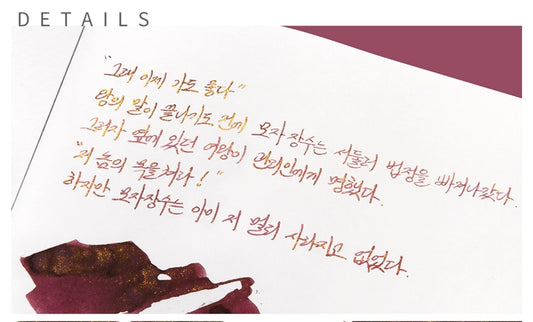 DETAILS
"그래 이제 가도 좋다"
왕의 말이 끝나기도 전에 모자장수는 서둘러 법정을 빠져나갔다.
그러자 옆에 있던 여왕이 관리인에게 명했다.
"저 놈의 목을쳐라!"
하지만 모자장수는 이미 저 멀리 사라지고 없었다.